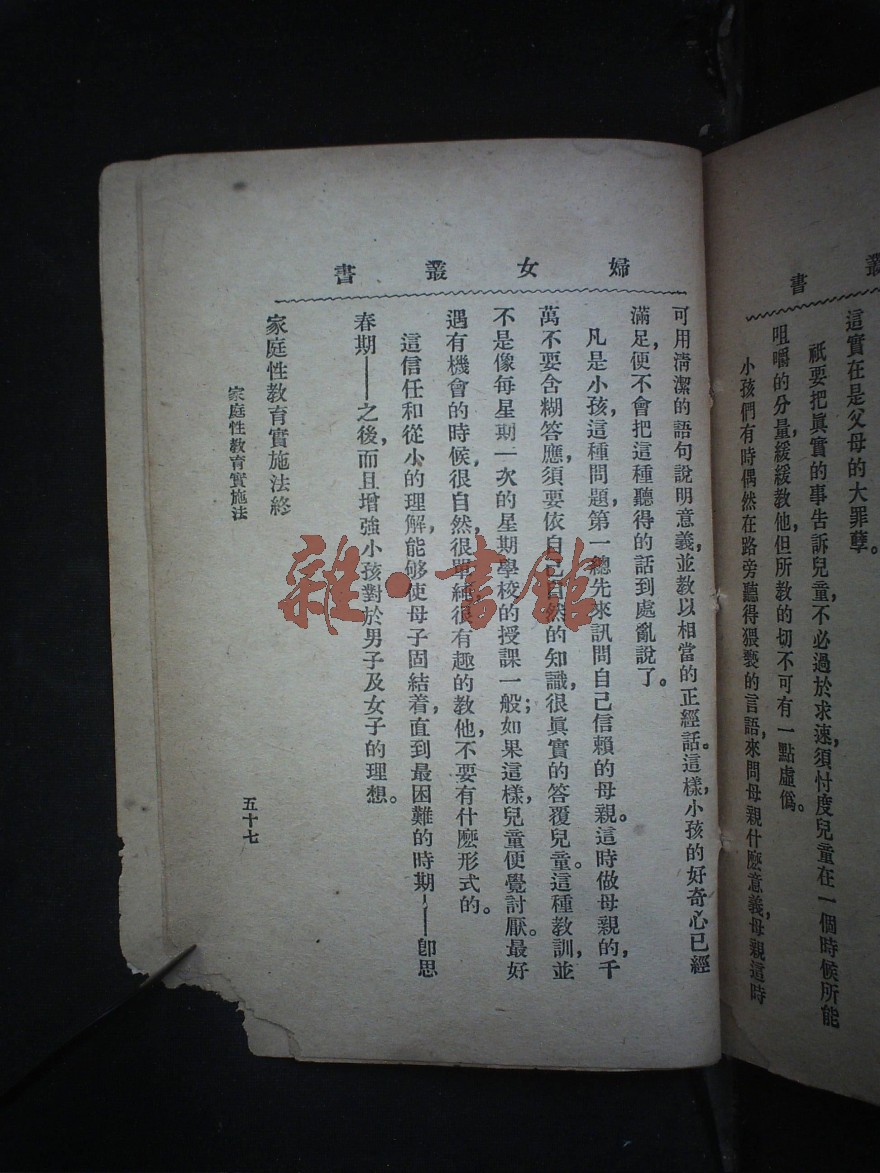 叢書
這實在是父母的大罪孽。
祇要把眞實的事吿訴兒童，不必過於求速，須忖度兒童在一個時候所能
咀嚼的分量，緩緩教他，但所教的切不可有一點虛僞。
小孩們有時偶然在路旁聽得猥褻的言語，來問母親什麽意義，母親這時
婦女叢書
可用淸潔的語句說明意義，並教以相當的正經話。這樣，小孩的好奇心已經
滿足，便不會把這種聽得的話到處亂說了。
凡是小孩，這種問題，第一總先來訊問自己信賴的母親。這時做母親的，千
萬不要含糊答應，須要依自己
然的知識，很眞實的答覆兒童。這種教訓，並
不是像每星期一次的星期學校的授課一般；如果這樣，兒童便覺討厭。最好
遇有機會的時候，很自然，很單純，很有趣的教他，不要有什麽形式的。
這信任和從小的理解，能够使母子固結着，直到最困難的時期——卽思
春期——之後，而且增強小孩對於男子及女子的理想。
家庭性教育實施法終
家庭性教育實施法
五十七
雜·書館